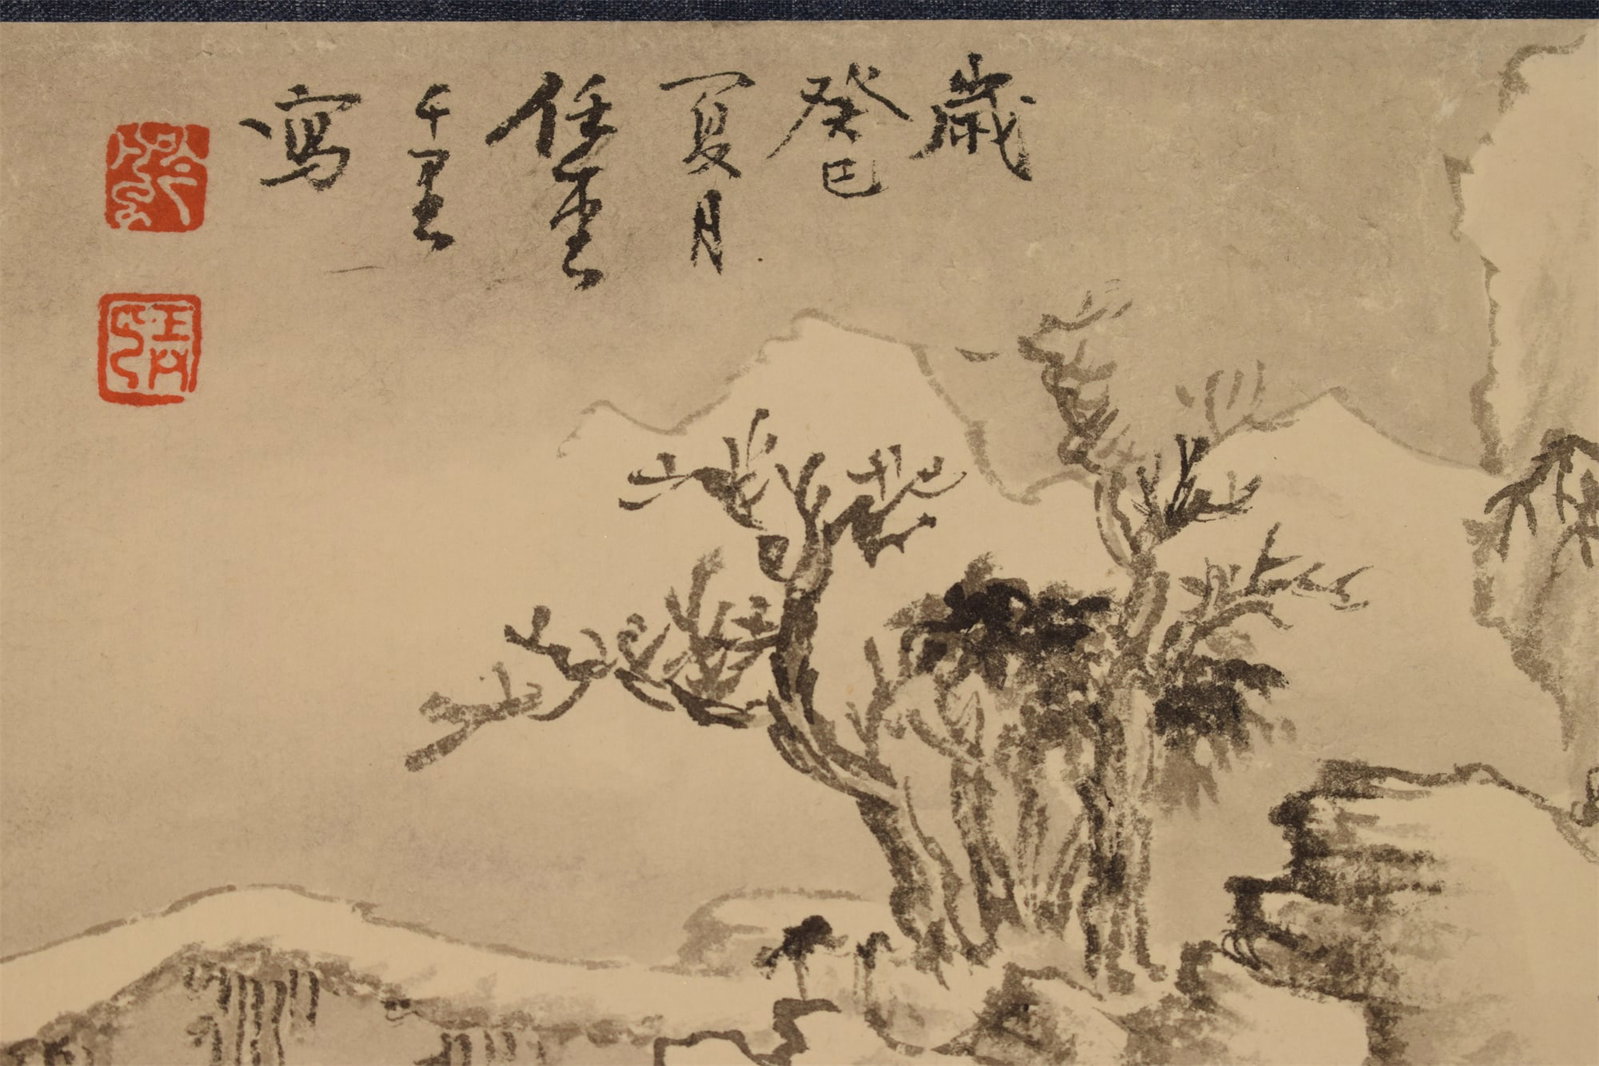 歲
癸巳
夏月
任重
千里
寫